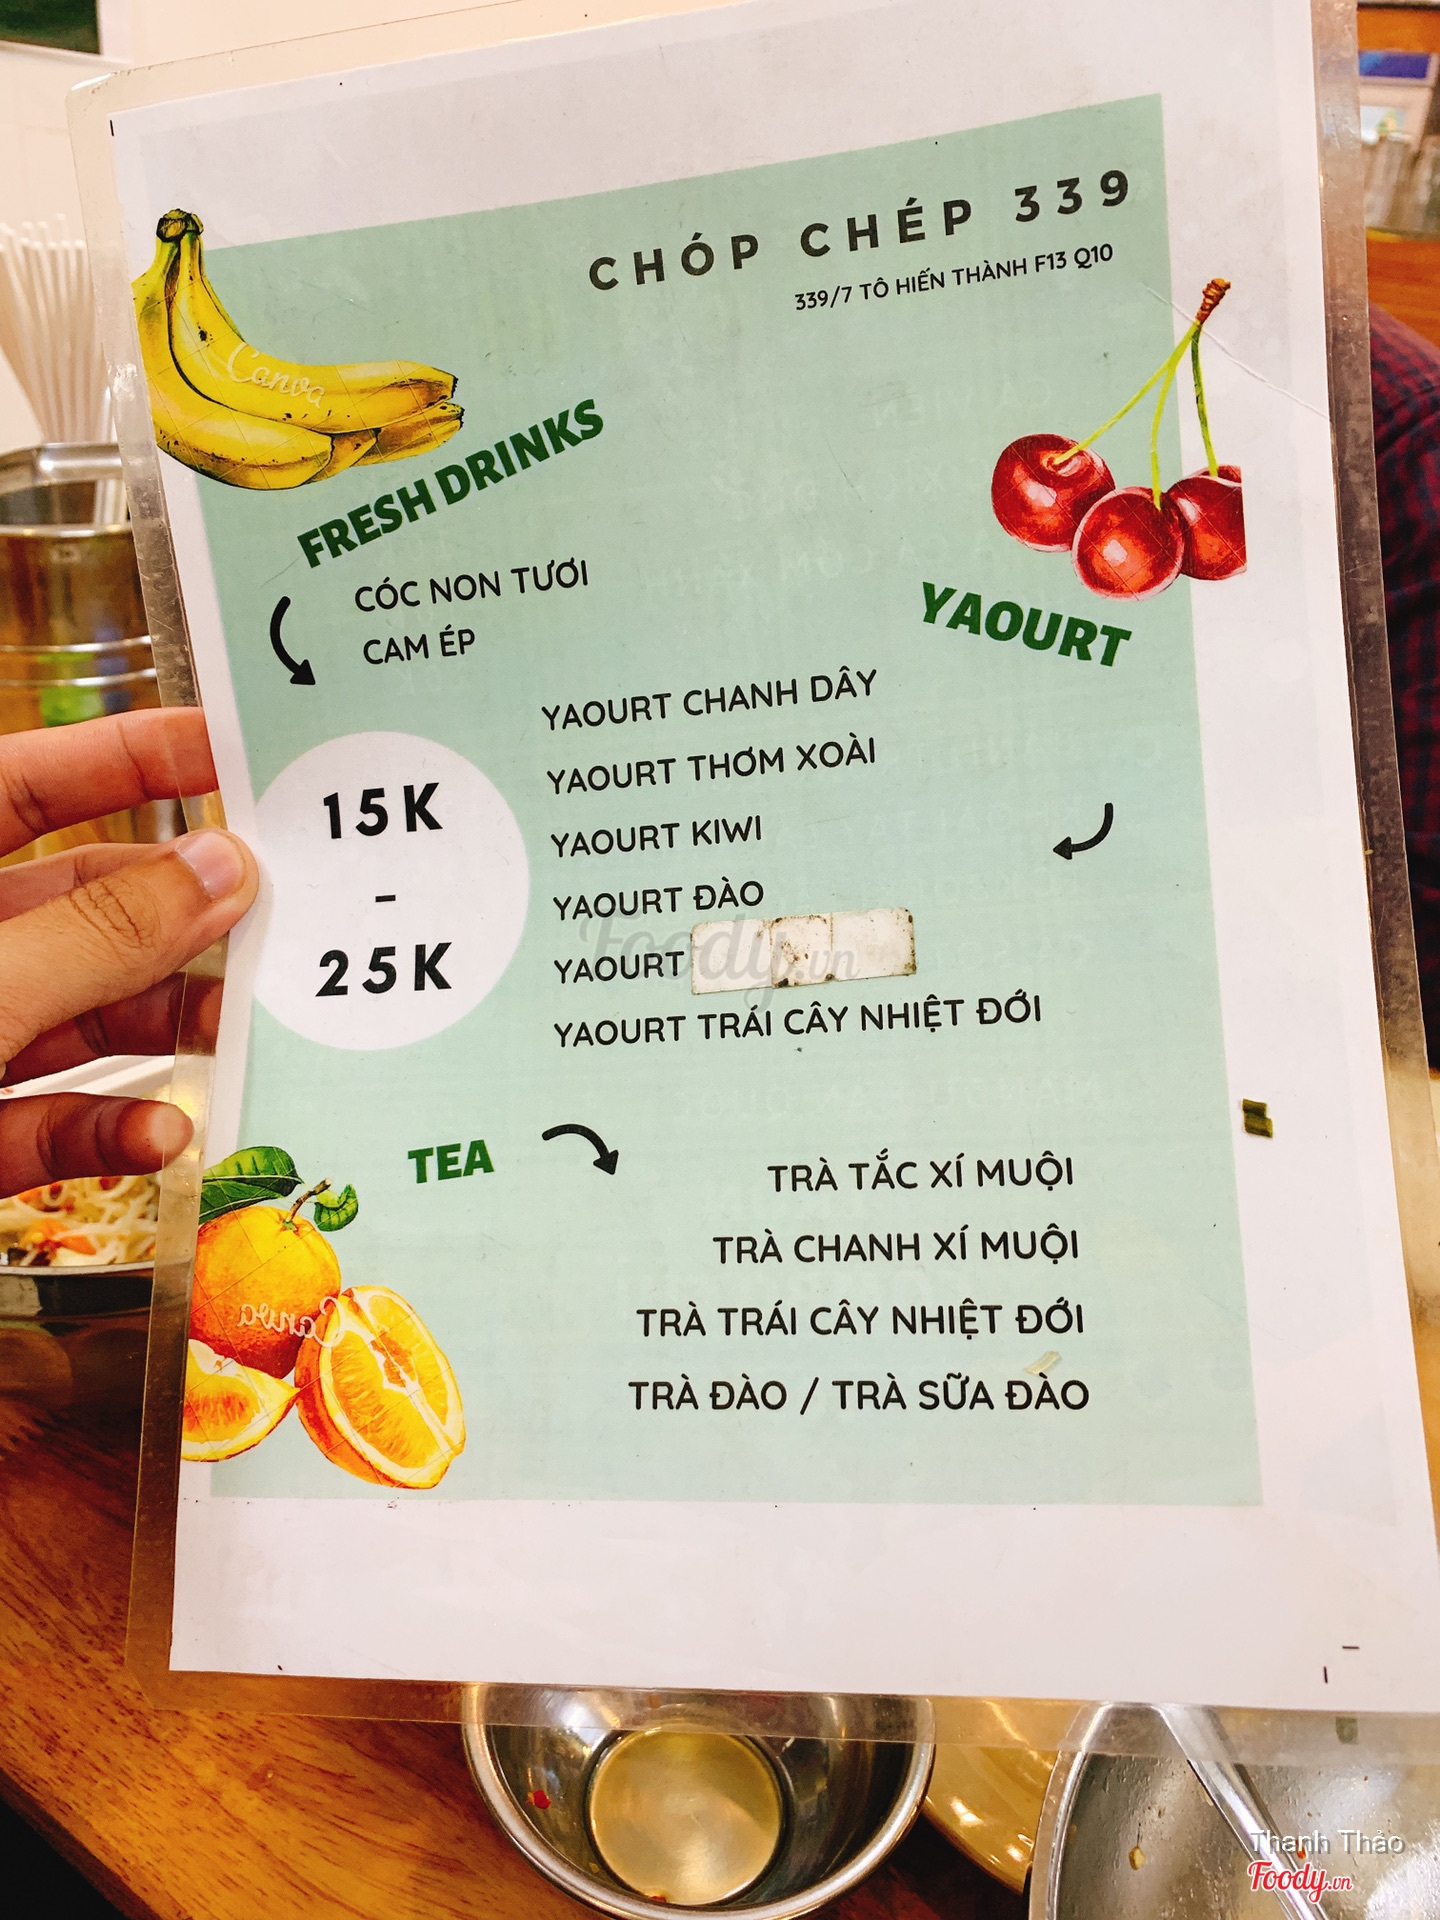 CHÓP CHÉP 339
339/7 TÔ HIẾN THÀNH F13 Q10
Canva
FRESH DRINKS
CÓC NON TƯƠI
CAM ÉP
YAOURT
YAOURT CHANH DÂY
YAOURT THƠM XOÀI
YAOURT KIWI
YAOURT ĐÀO
YAOURT
YAOURT TRÁI CÂY NHIỆT ĐỚI
15K
-
25K
Foody.vn
TEA
TRÀ TẮC XÍ MUỘI
TRÀ CHANH XÍ MUỘI
TRÀ TRÁI CÂY NHIỆT ĐỚI
TRÀ ĐÀO / TRÀ SỮA ĐÀO
Canva
Thanh Thảo
Foody.vn